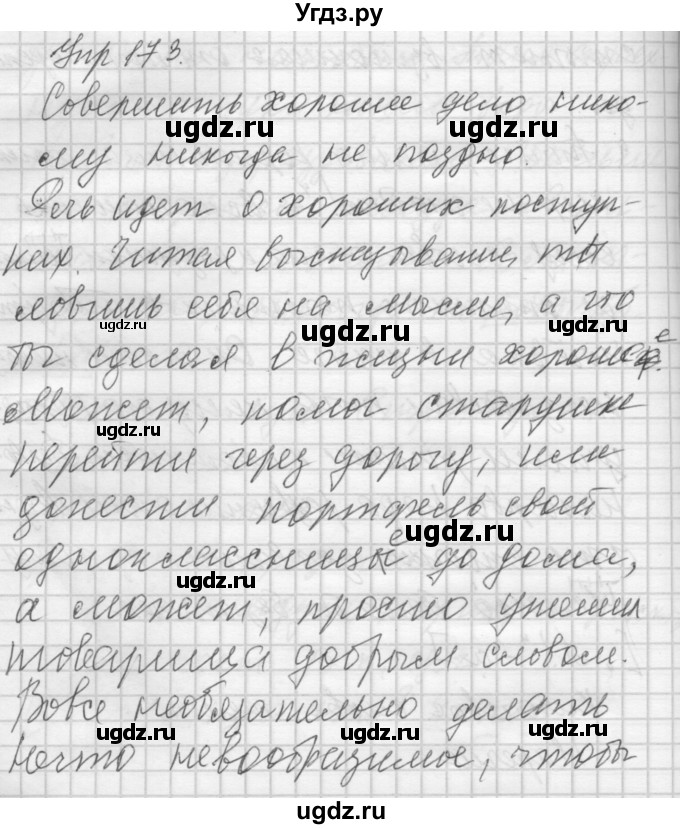 Угдз.ру
Упр 173.
Совершить хорошее дело нико-
му никогда не поздно.
Речь идет о хороших поступ-
ках. Читая высказывание, ты
ловишь себя на мысли, а что
ты сделал в жизни хорошее.
Может, помог старушке
перейти через дорогу, или
донести портфель своей
однокласснице до дома,
а может, просто утешил
товарища добрым словом.
Вовсе необязательно делать
нечто невообразимое, чтобы
ugdz.ru